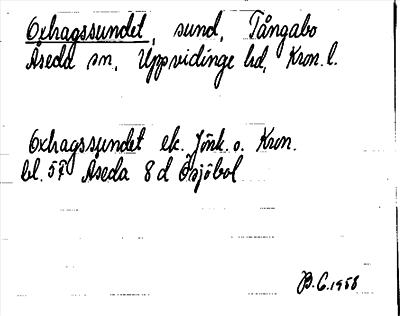 Oxhagssundet, sund, Tångabo
Åseda sn, Uppvidinge hd, Kron. l.
Oxhagssundet ek. Jönk. o. Kron.
bl. 57 Åseda 8 d Örsjöbol
B.C. 1958